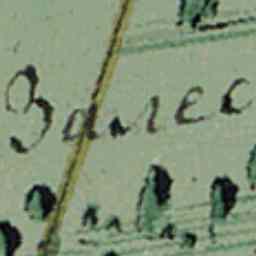 Залес